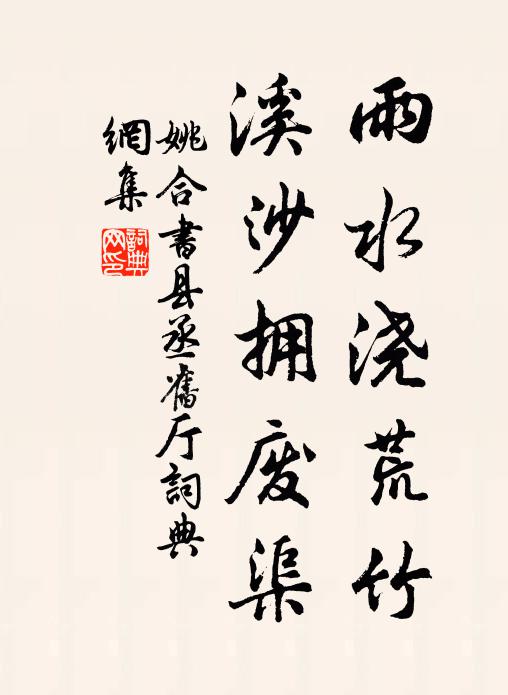 雨水浇荒竹
溪沙拥废渠
姚合書县丞舊厅詞典
網集
詞典
网印